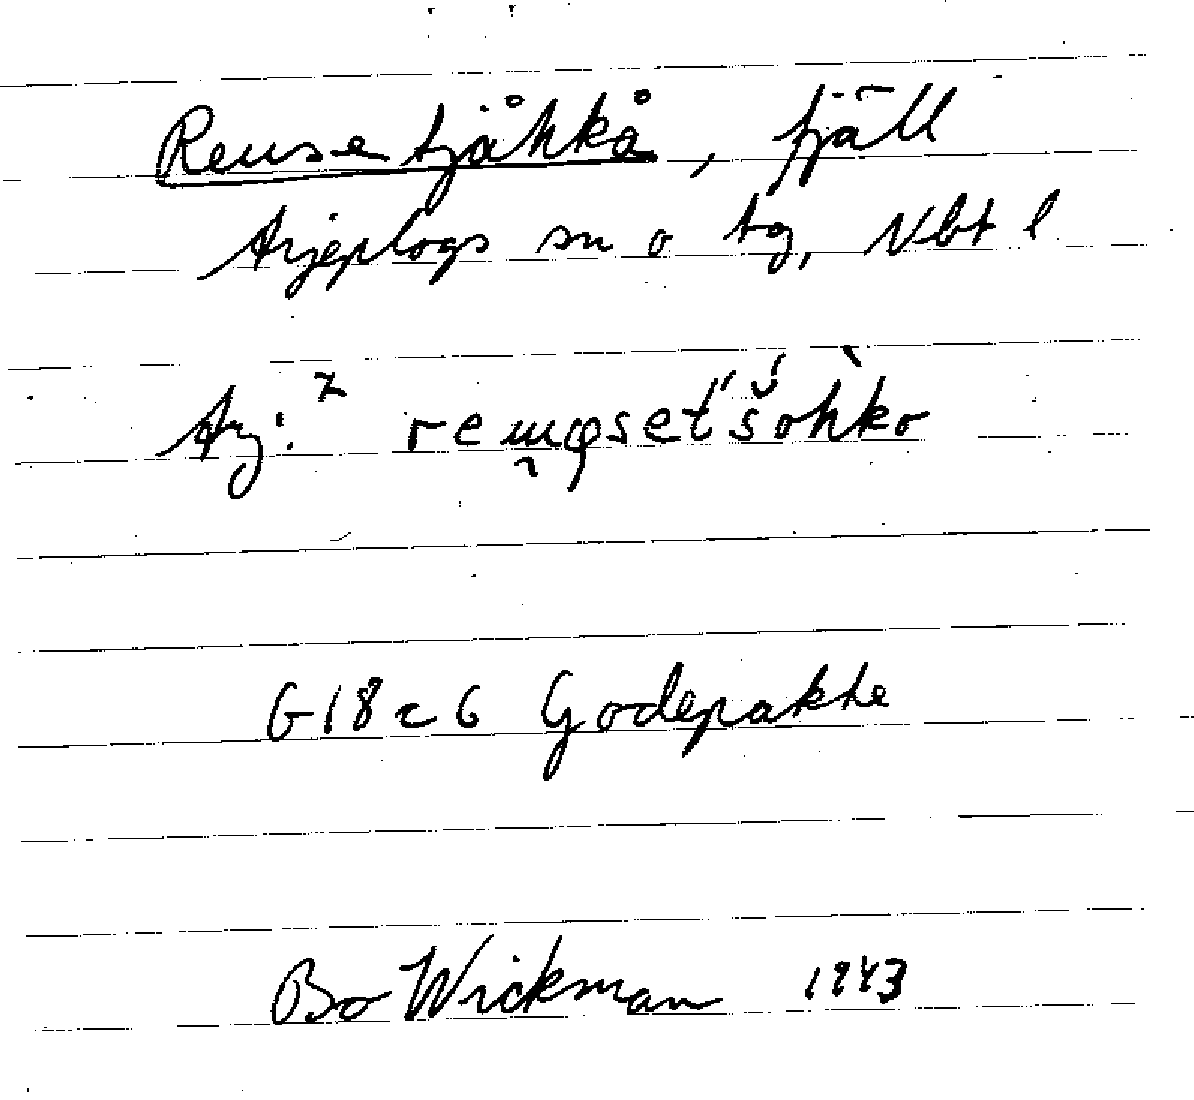 Reusetjåhkå, fjäll
Arjeplogs sn o tg, Nbt l
Arj:
G 18 c 6 Godepakte
Bo Wickman 1943